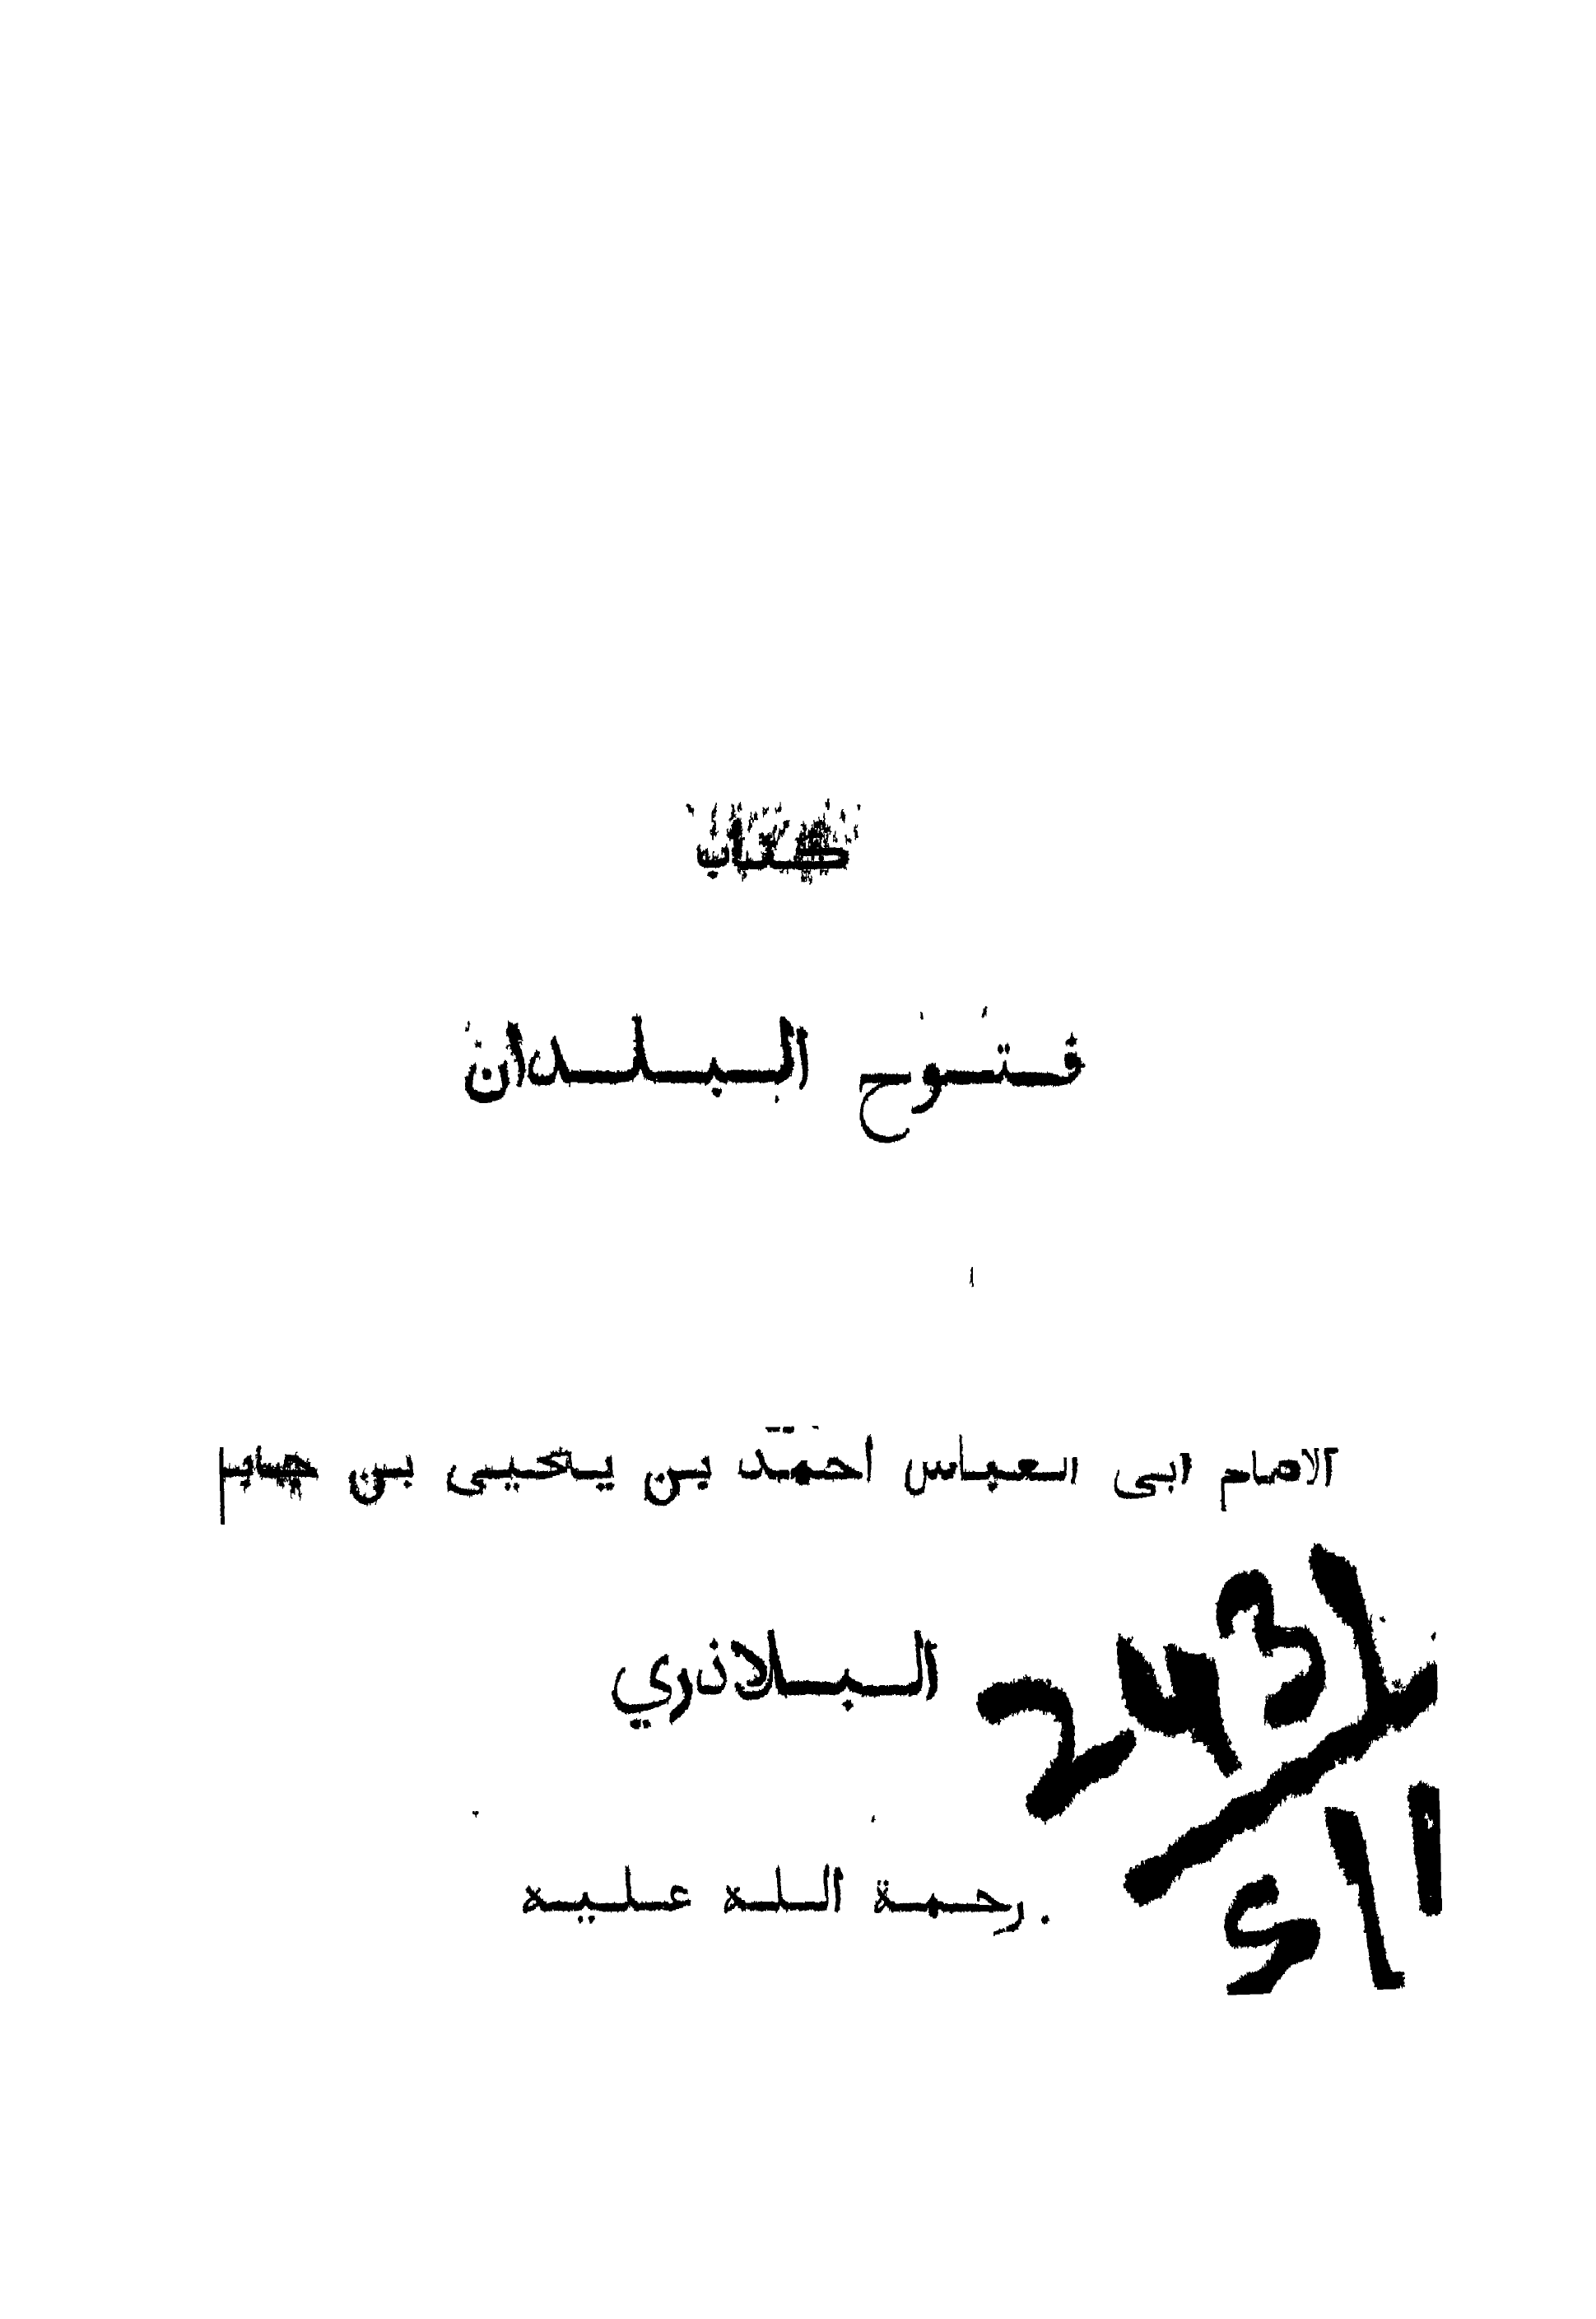 كتاب
فتوح البلدان
الامام ابى العباس احمد بن يحيى بن جابر
البلاذري
رحمة الله عليه
2431